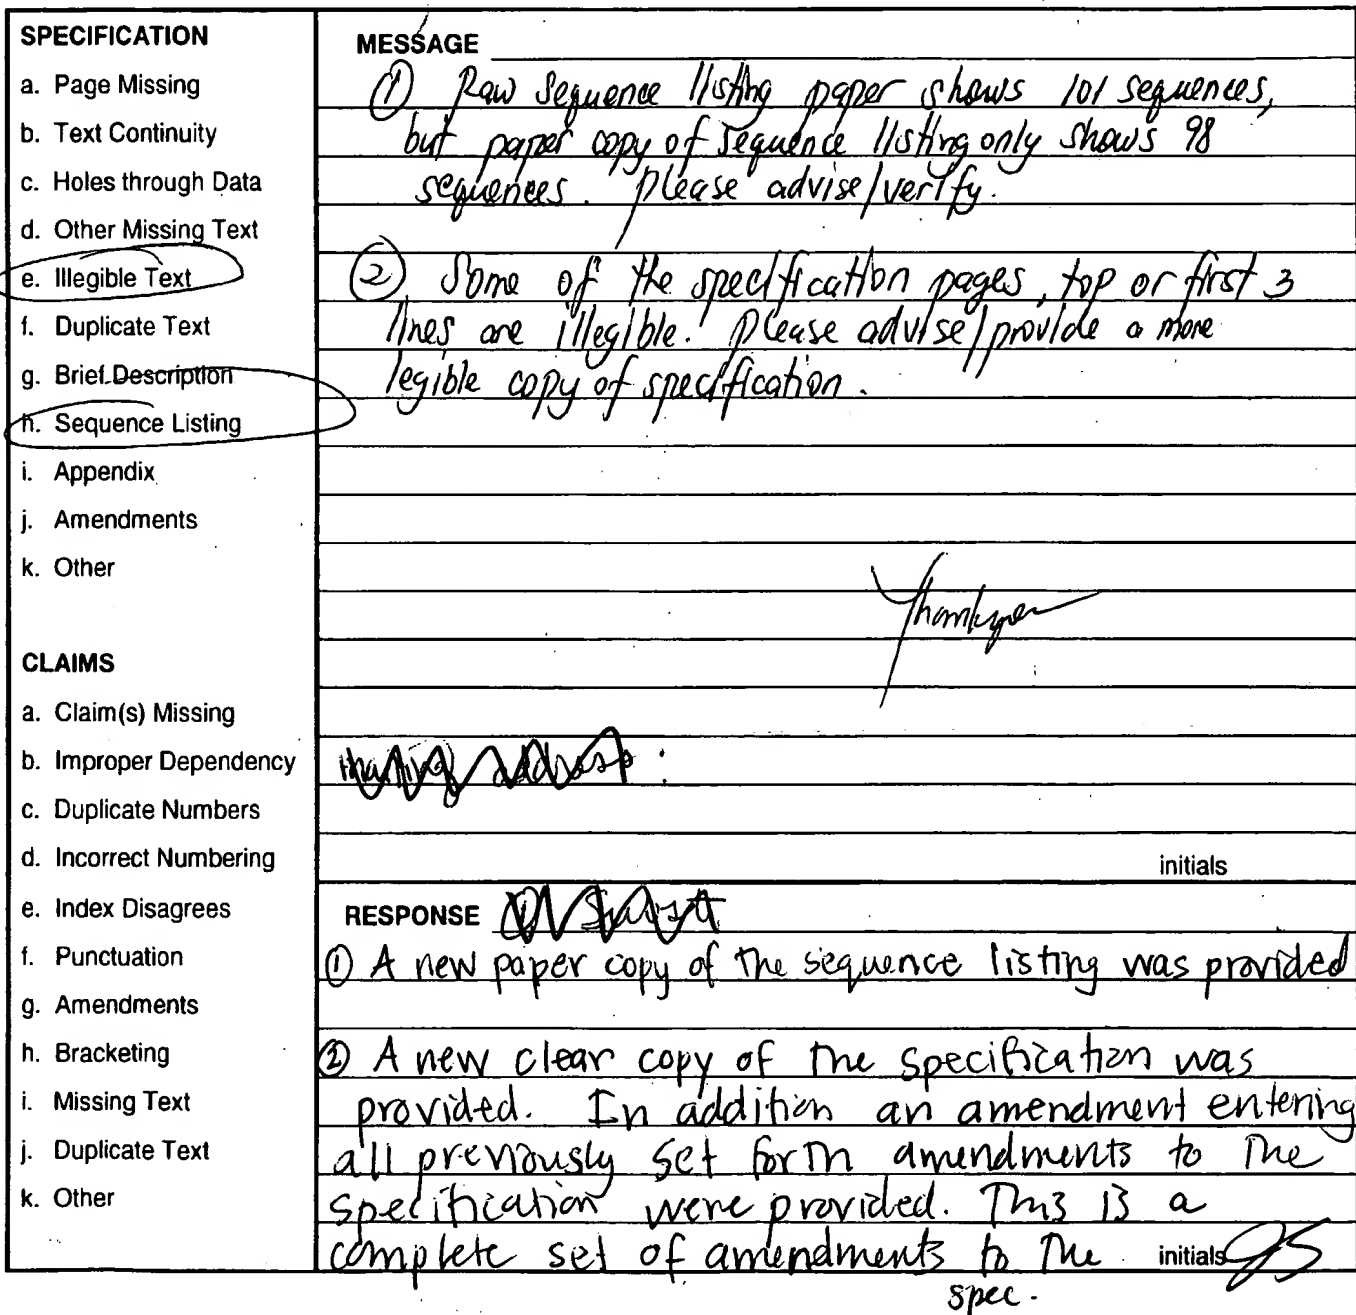 SPECIFICATION
a. Page Missing
b. Text Continuity
c. Holes through Data
d. Other Missing Text
e. Illegible Text
f. Duplicate Text
g. Brief Description
h. Sequence Listing
i. Appendix
j. Amendments
k. Other
CLAIMS
a. Claim(s) Missing
b. Improper Dependency
c. Duplicate Numbers
d. Incorrect Numbering
e. Index Disagrees
f. Punctuation
g. Amendments
h. Bracketing
i. Missing Text
j. Duplicate Text
k. Other
MESSAGE
① Raw Sequence listing paper shows 101 sequences,
but paper copy of sequence listing only shows 98
sequences. Please advise/verify.
② Some of the specification pages, top or first 3
lines are illegible. Please advise/provide a more
legible copy of specification.
Thankyou
mailing address :
initials
RESPONSE
① A new paper copy of the sequence listing was provided
② A new clear copy of the specification was
provided. In addition an amendment entering
all previously set forth amendments to the
specification were provided. This is a
complete set of amendments to the initials JS
spec.